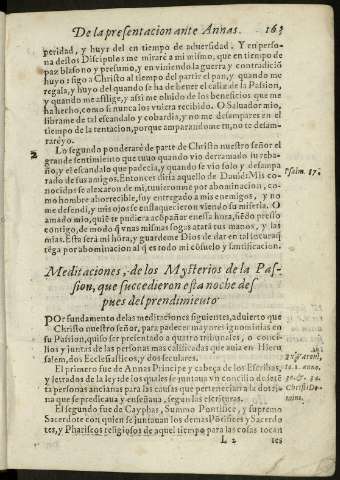 De la presentacion ante Annas. 163
peridad, y huyr del en tiempo de aduersidad. Y en perso-
na destos Discipulos me mirare a mi mismo, que en tiempo de
paz blasono y presumo, y en viniendo la guerra y contradició
huyo: sigo a Christo al tiempo del partir el pan, y quando me
regala, y huyo del quando se ha de beuer el caliz de la Passion,
y quando me aflige, y assi me oluido de los beneficios que me
ha hecho, como si nunca los vuiera recibido. O Saluador mio,
librame de tal escandalo y cobardia, y no me desampares en el
tiempo de la tentacion, porque amparandome tu, no te desam-
parareyo.
2 Lo segundo ponderarè de parte de Christo nuestro señor el
grande sentimiento que tuuo quando vio derramado su reba-
ño, y el escandalo que padecia, y quando se vio solo y desampa
rado de sus amigos. Entonces diria aquello de Dauid: Mis co-
Psalm. 87.
nocidos se alexaron de mi, tuuieronme por abominacion, co-
mo hombre aborrecible, soy entregado a mis enemigos, y no
me defendi, y mis ojos se enflaquecieron viendo su miseria. O
amado mio, quié te pudiera acópañar en essa hora, siédo presso
contigo, de modo q̃ vnas mismas sogas atarà tus manos, y las
mias. Esta serà mi hora, y guardeme Dios de dar en tal locura q̃
tẽga por abominacion al q̃ es todo mi cósuelo y santificacion.
Meditaciones, de los Mysterios de la Pas-
sion, que succedieron esta noche des
pues del prendimiento
POr fundamento delas meditaciones siguientes, aduierto que
Christo nuestro señor, para padecer mayores ignominias en
su Passion, quiso ser presentado a quatro tribunales, o conci-
lios y juntas de las personas mas calificadas que auia en Hieru
salem, dos Ecclesiasticos, y dos seculares.
El primero fue de Annas Principe y cabeça de los Escribas,
y letrados de la ley de los quales se juntauan vn concilio de seté
ta personas ancianas para las causas que pertenecian a la dotri-
na que se predicaua y enseñaua, segun las escrituras.
Christi Do-
mini.
El segundo fue de Cayphas, Summo Pontifice, y supremo
Sacerdote con quien se juntauan los demas Pótifices y Sacerdo
tes, y Phariseos religiosos de aquel tiempo para las cosas tocan
L 2 tes